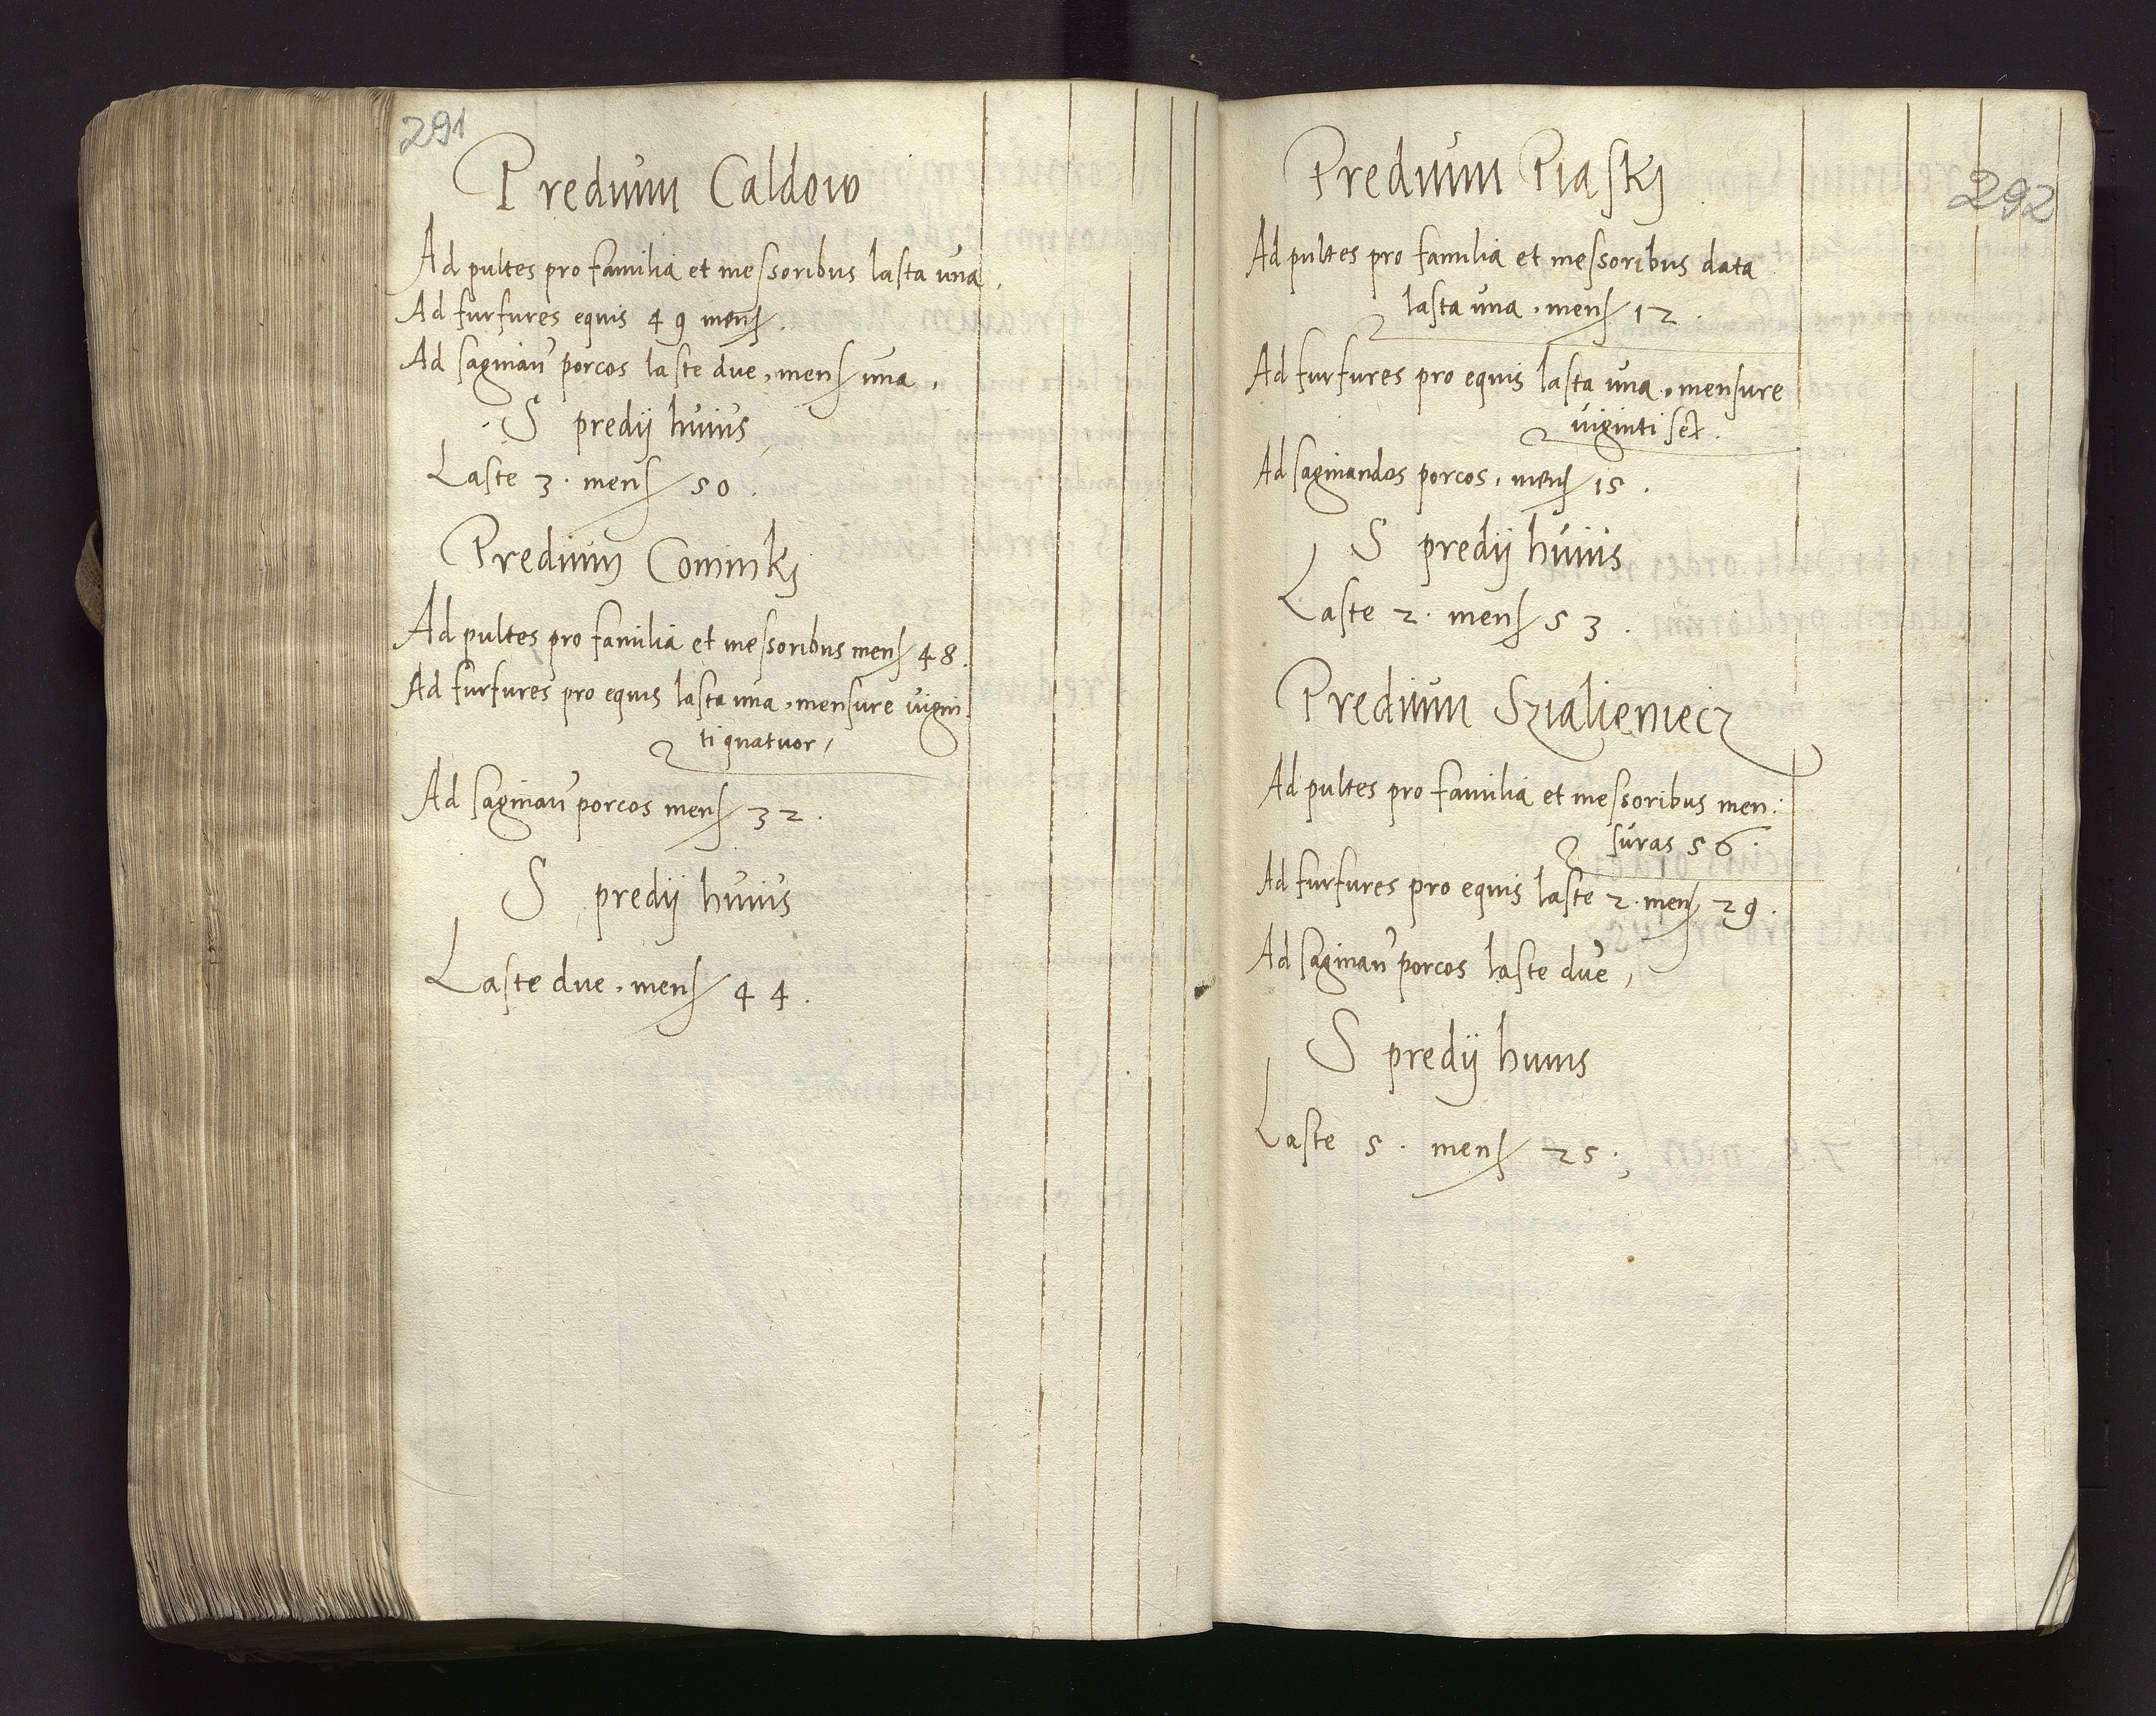 291
Predium Caldow
Ad pultes pro familia et messoribus lasta una.
Ad furfures equis 49 mens.
Ad saginan porcos laste due, mens una.
S predij huius
Laste 3. mens 50.
Predium Cominkj
Ad pultes pro familia et messoribus mens 48.
Ad furfures pro equis lasta una, mensure vigin
ti quatuor,
Ad saginan porcos mens 32.
S predij huius
Laste due, mens 44.
292
Predium Piaskj
Ad pultes pro familia et messoribus data
lasta una, mens 12.
Ad furfures pro equis lasta una, mensure
viginti sex.
Ad saginandos porcos, mens 15.
S predij huius
Laste 2. mens 53.
Predium Szialieniecz
Ad pultes pro familia et messoribus men:
suras 56.
Ad furfures pro equis laste 2. mens 29.
Ad saginan porcos laste due,
S predij huius
Laste 5. mens 25.